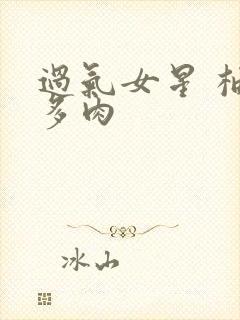 過氣女星 柚
多肉
冰山